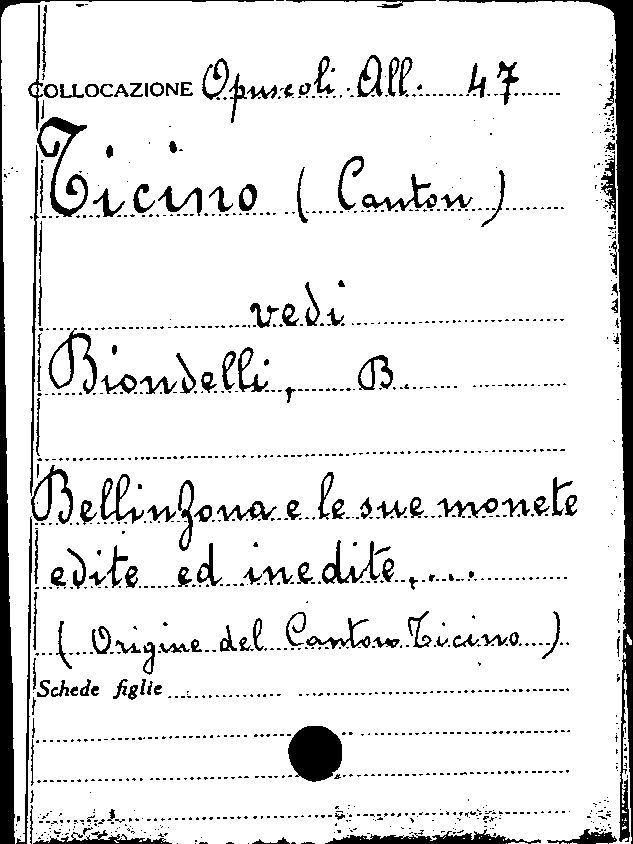 COLLOCAZIONE Opuscoli. All. 47
Ticino ( Canton )
vedi
Biondelli, B.
Bellinzona e le sue monete
edite ed inedite,...
( Origine del Canton Ticino )
Schede figlie